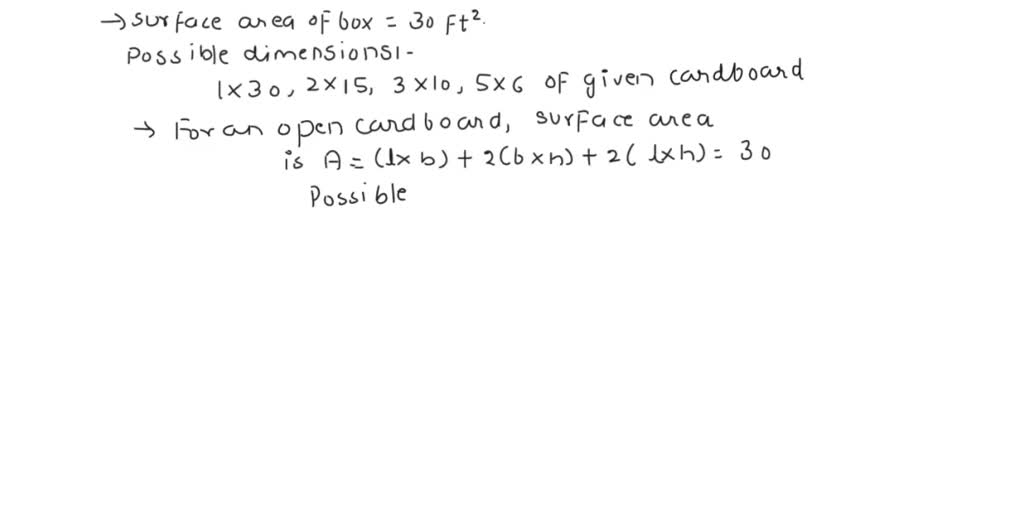 → surface area of box = 30 ft².
Possible dimensions:-
1×30, 2×15, 3×10, 5×6 of given cardboard
→ For an open cardboard, surface area
is A = (l×b) + 2(b×h) + 2(l×h) = 30
Possible